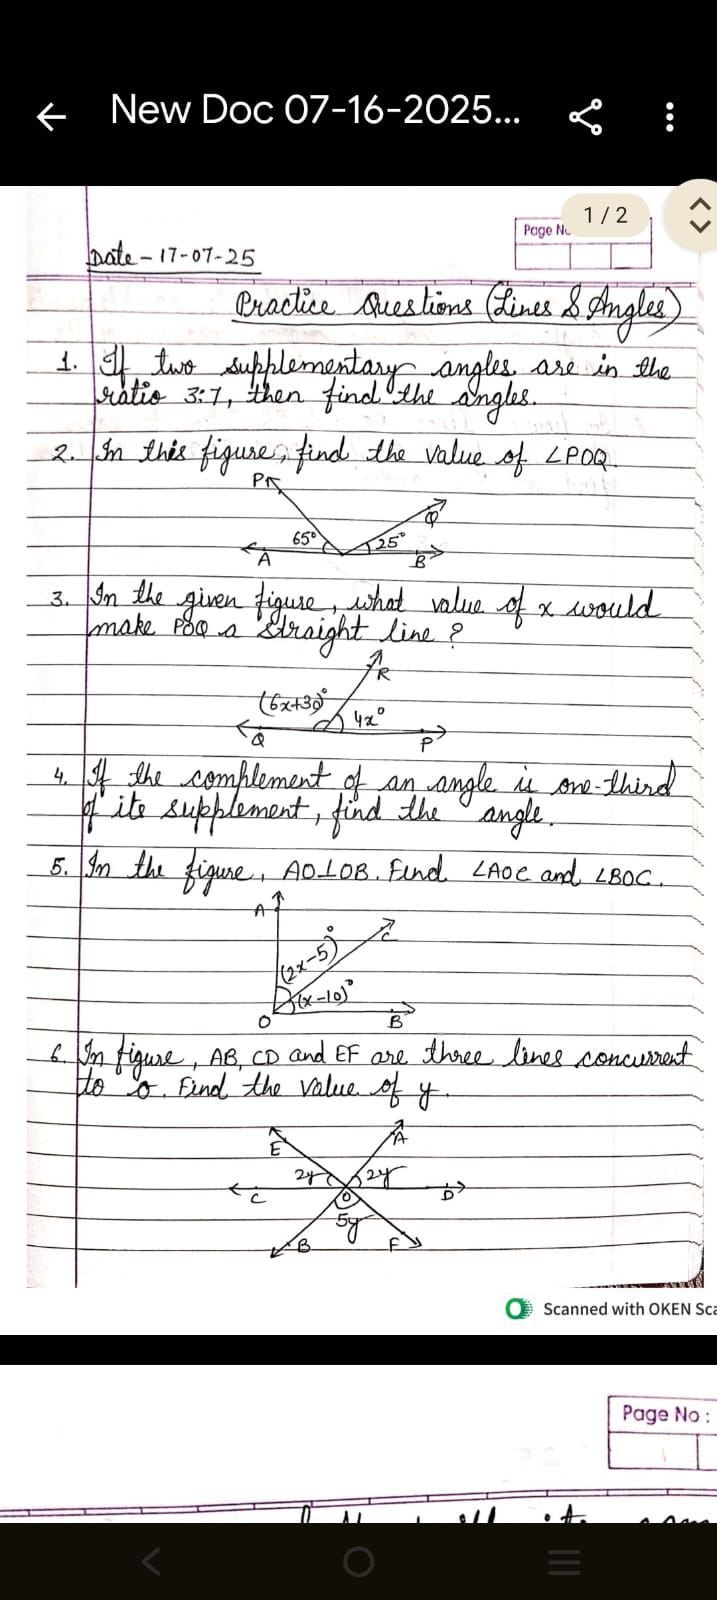 New Doc 07-16-2025...
1 / 2
Page No
Date - 17-07-25
Practice Questions (Lines & Angles)
1. If two supplementary angles are in the
ratio 3:7, then find the angles.
2. In this figure, find the value of ∠POQ.
P
Q
65°
25°
A
B
3. In the given figure, what value of x would
make POQ a straight line ?
R
(6x+30)°
4x°
Q
P
4. If the complement of an angle is one-third
of its supplement, find the angle.
5. In the figure, AO⊥OB. Find ∠AOC and ∠BOC.
A
C
(2x-5)°
(x-10)°
O
B
6. In figure, AB, CD and EF are three lines concurrent
to O. Find the value of y.
E
A
2y
2y
C
D
O
5y
B
F
Scanned with OKEN Sca
Page No :